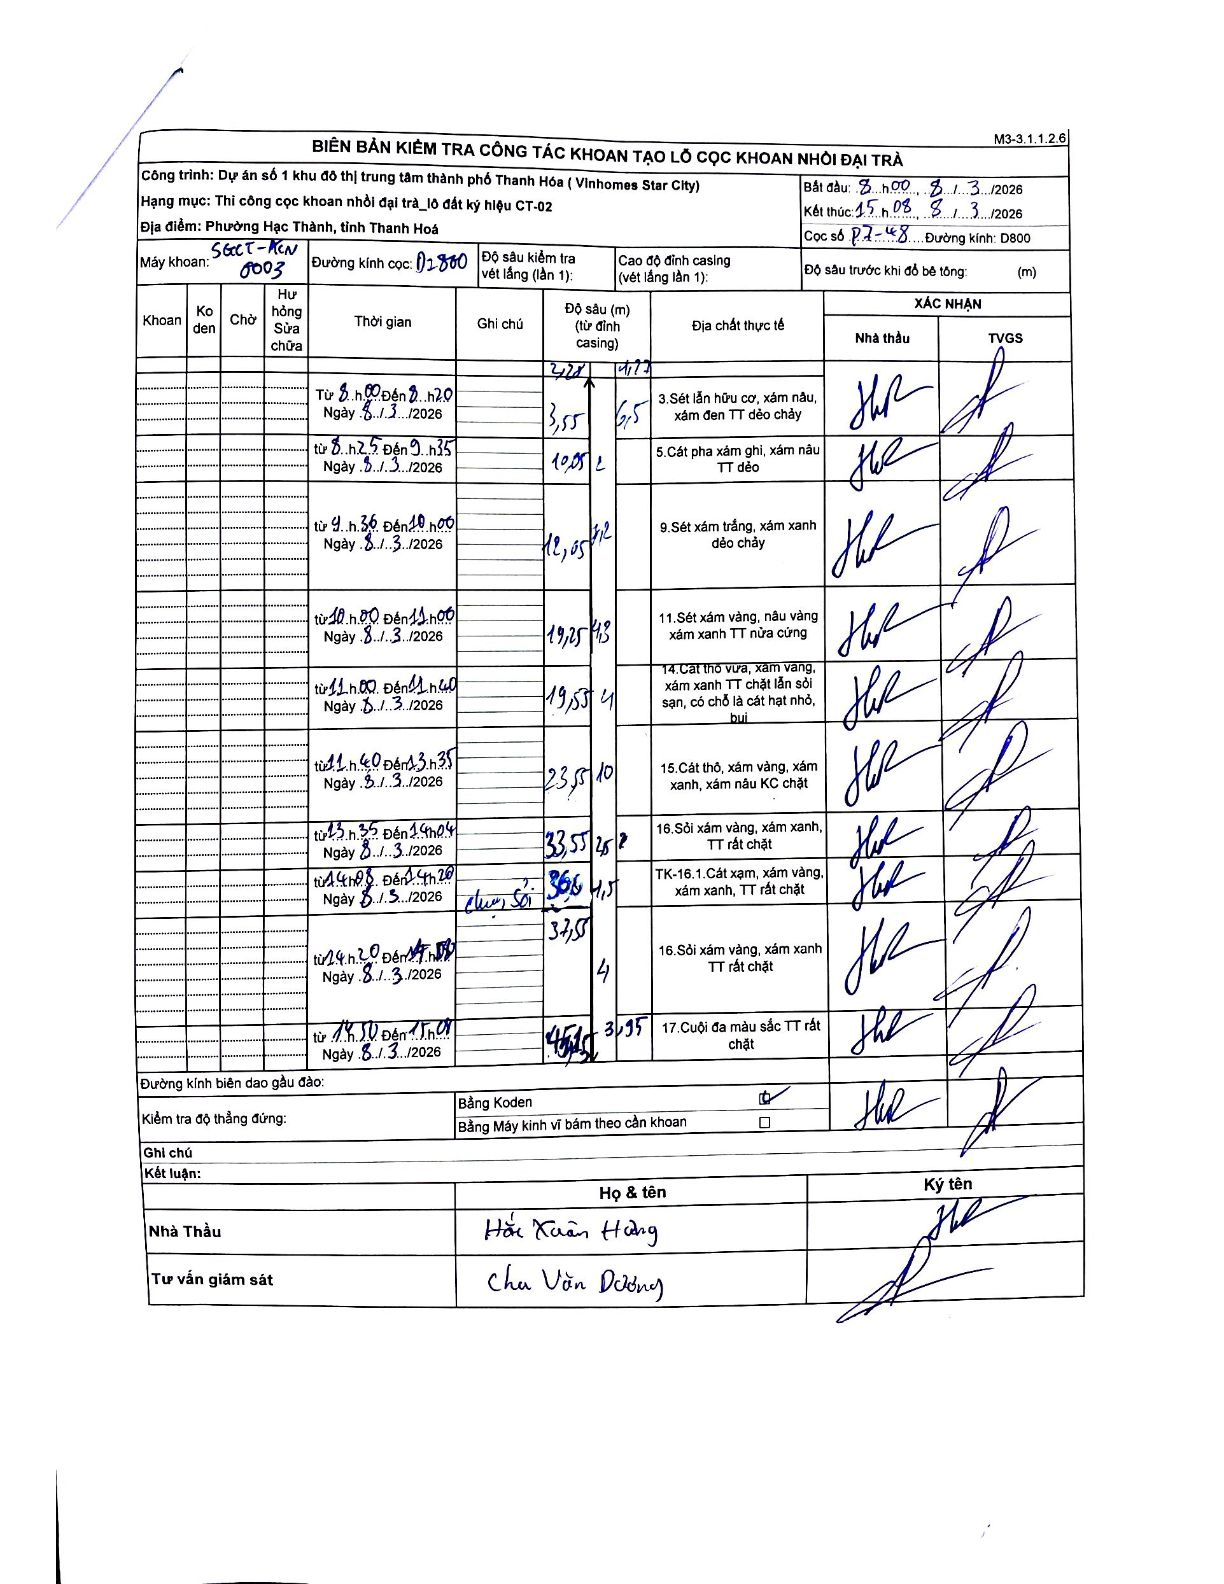 M3-3.1.1.2.6
BIÊN BẢN KIỂM TRA CÔNG TÁC KHOAN TẠO LỖ CỌC KHOAN NHỒI ĐẠI TRÀ
Công trình: Dự án số 1 khu đô thị trung tâm thành phố Thanh Hóa ( Vinhomes Star City)
Hạng mục: Thi công cọc khoan nhồi đại trà_lô đất ký hiệu CT-02
Địa điểm: Phường Hạc Thành, tỉnh Thanh Hoá
Bắt đầu: 8 h 00, 8 / 3 /2026
Kết thúc: 15 h 08, 8 / 3 /2026
Cọc số P7-48 Đường kính: D800
Máy khoan: 0003
Đường kính cọc:
Độ sâu kiểm tra vét lắng (lần 1):
Cao độ đỉnh casing (vét lắng lần 1):
Độ sâu trước khi đổ bê tông: (m)
Khoan
Ko den
Chờ
Hư hỏng Sửa chữa
Thời gian
Ghi chú
Độ sâu (m) (từ đỉnh casing)
Địa chất thực tế
XÁC NHẬN
Nhà thầu
TVGS
2,28
Từ 8 h 00 Đến 8 h 20
Ngày 8 / 3 /2026
3,55
6,5
3.Sét lẫn hữu cơ, xám nâu, xám đen TT dẻo chảy
từ 8 h 25 Đến 9 h 35
Ngày 8 / 3 /2026
10,05
2
5.Cát pha xám ghi, xám nâu TT dẻo
từ 9 h 36 Đến 10 h 00
Ngày 8 / 3 /2026
12,05
7,2
9.Sét xám trắng, xám xanh dẻo chảy
từ 10 h 00 Đến 11 h 00
Ngày 8 / 3 /2026
19,25
11.Sét xám vàng, nâu vàng xám xanh TT nửa cứng
từ 11 h 00 Đến 11 h 40
Ngày 8 / 3 /2026
19,55
4
14.Cát thô vừa, xám vàng, xám xanh TT chặt lẫn sỏi sạn, có chỗ là cát hạt nhỏ, bụi
từ 11 h 40 Đến 13 h 35
Ngày 8 / 3 /2026
23,55
10
15.Cát thô, xám vàng, xám xanh, xám nâu KC chặt
từ 13 h 35 Đến 14h04
Ngày 8 / 3 /2026
33,55
16.Sỏi xám vàng, xám xanh, TT rất chặt
từ 14h08 Đến 14h20
Ngày 8 / 3 /2026
1,5
TK-16.1.Cát xạm, xám vàng, xám xanh, TT rất chặt
từ 14 h 20 Đến
Ngày 8 / 3 /2026
37,55
4
16.Sỏi xám vàng, xám xanh TT rất chặt
từ 14 h 50 Đến 15 h 08
Ngày 8 / 3 /2026
3,95
17.Cuội đa màu sắc TT rất chặt
Đường kính biên dao gầu đào:
Kiểm tra độ thẳng đứng:
Bằng Koden
Bằng Máy kinh vĩ bám theo cần khoan
Ghi chú
Kết luận:
Họ & tên
Ký tên
Nhà Thầu
Hắc Xuân Hưng
Tư vấn giám sát
Chu Văn Dương